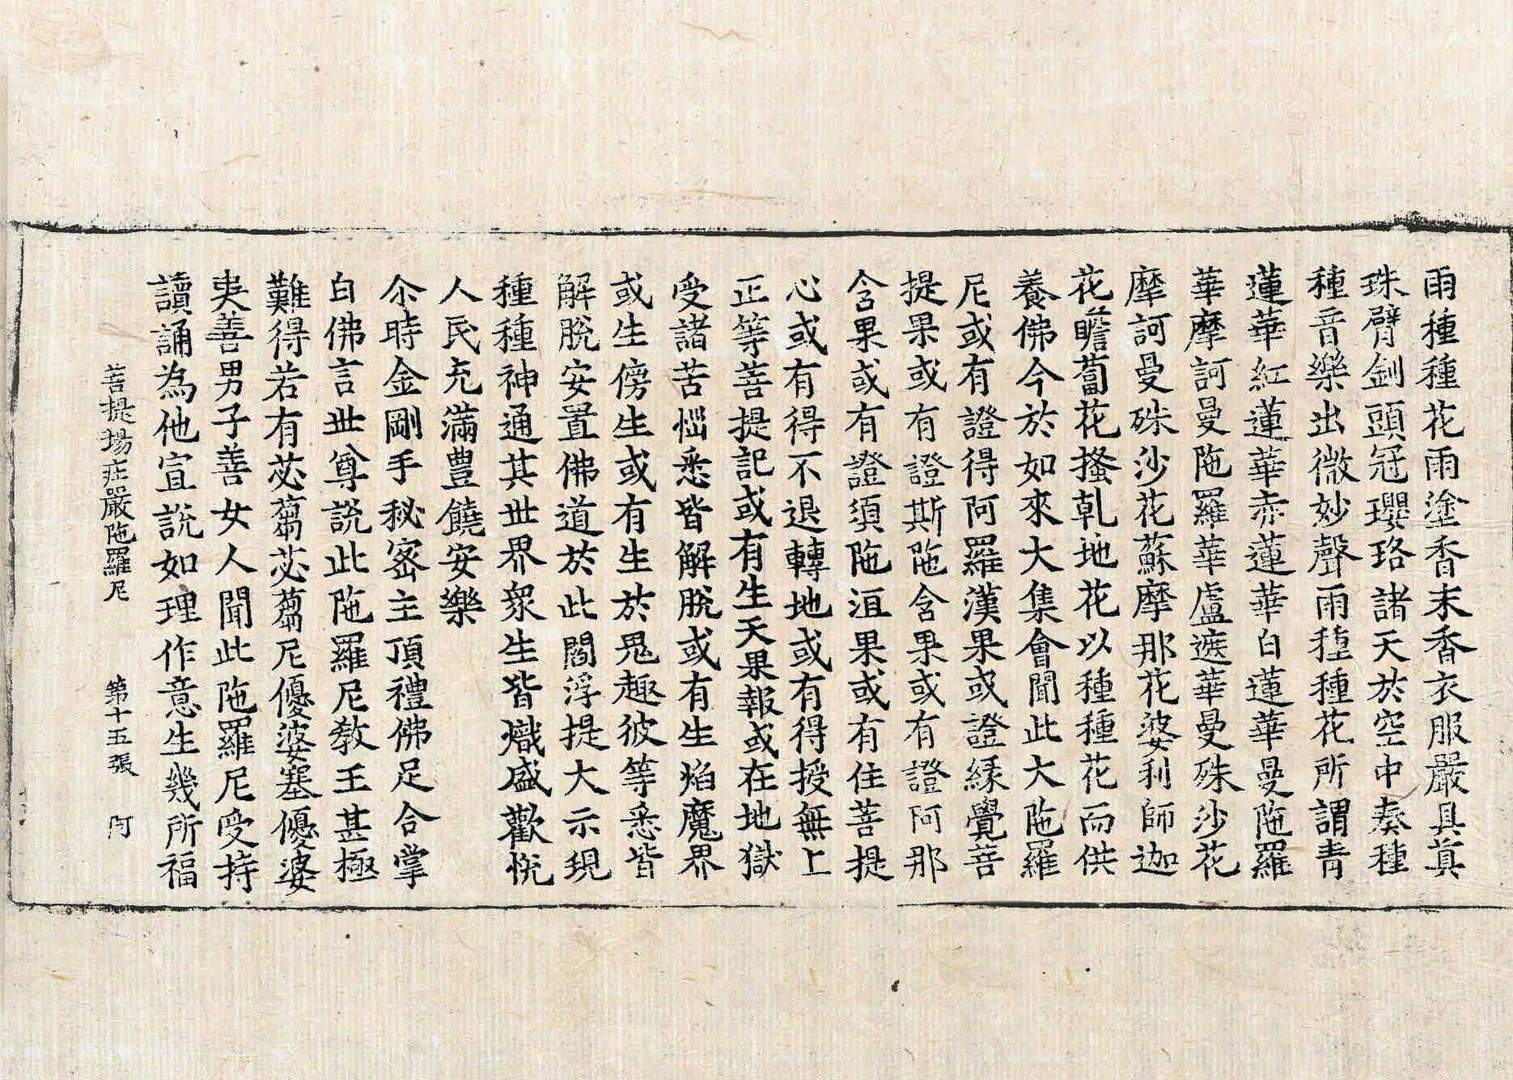 雨種種花雨塗香末香衣服嚴具真
珠臂釧頭冠瓔珞諸天於空中奏種
種音樂出微妙聲雨種種花所謂青
蓮華紅蓮華赤蓮華白蓮華曼陁羅
華摩訶曼陁羅華盧遮華曼殊沙花
摩訶曼殊沙花蘇摩那花婆利師迦
花瞻蔔花搔乹地花以種種花而供
養佛今於如來大集會聞此大陁羅
尼或有證得阿羅漢果或證緣覺菩
提果或有證斯陁含果或有證阿那
含果或有證須陁洹果或有住菩提
心或有得不退轉地或有得授無上
正等菩提記或有生天果報或在地獄
受諸苦惱悉皆解脫或有生焰魔界
或生傍生或有生於鬼趣彼等悉皆
解脫安置佛道於此閻浮提大示現
種種神通其世界衆生皆熾盛歡悅
人民充滿豊饒安樂
尒時金剛手秘密主頂禮佛足合掌
白佛言世尊說此陁羅尼教王甚極
難得若有苾蒭苾蒭尼優婆塞優婆
夷善男子善女人聞此陁羅尼受持
讀誦為他宣說如理作意生幾所福
菩提場莊嚴陁羅尼 第十五張 阿